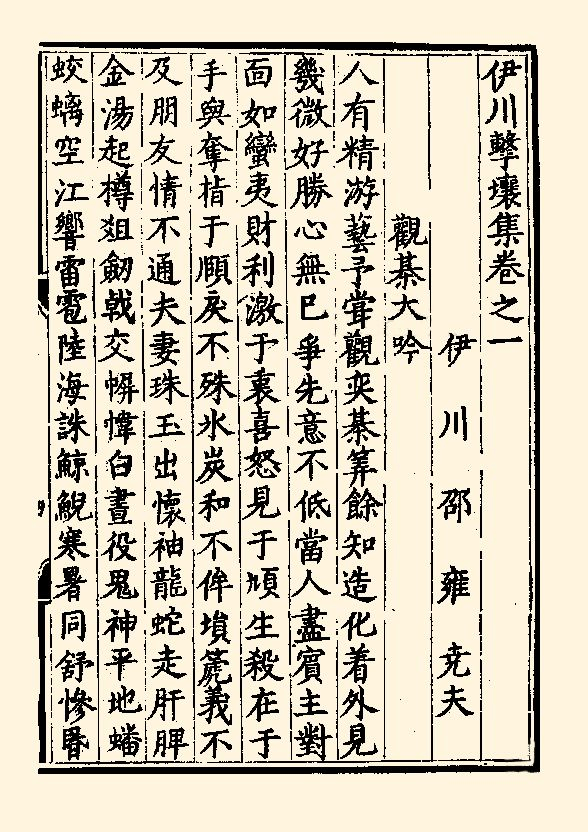 伊川擊壤集卷之一
伊川邵雍堯夫
觀棊大吟
人有精游藝予甞觀奕棊筭餘知造化着外見
幾微好勝心無已爭先意不低當人盡賓主對
面如蠻夷財利激于衷喜怒見于頄生殺在于
手與奪指于頤戾不殊氷炭和不侔塤篪義不
及朋友情不通夫妻珠玉出懷袖龍蛇走肝脾
金湯起樽爼劒戟交幈幃白晝役鬼神平地蟠
蛟螭空江響雷雹陸海誅鯨鯢寒暑同舒慘昬